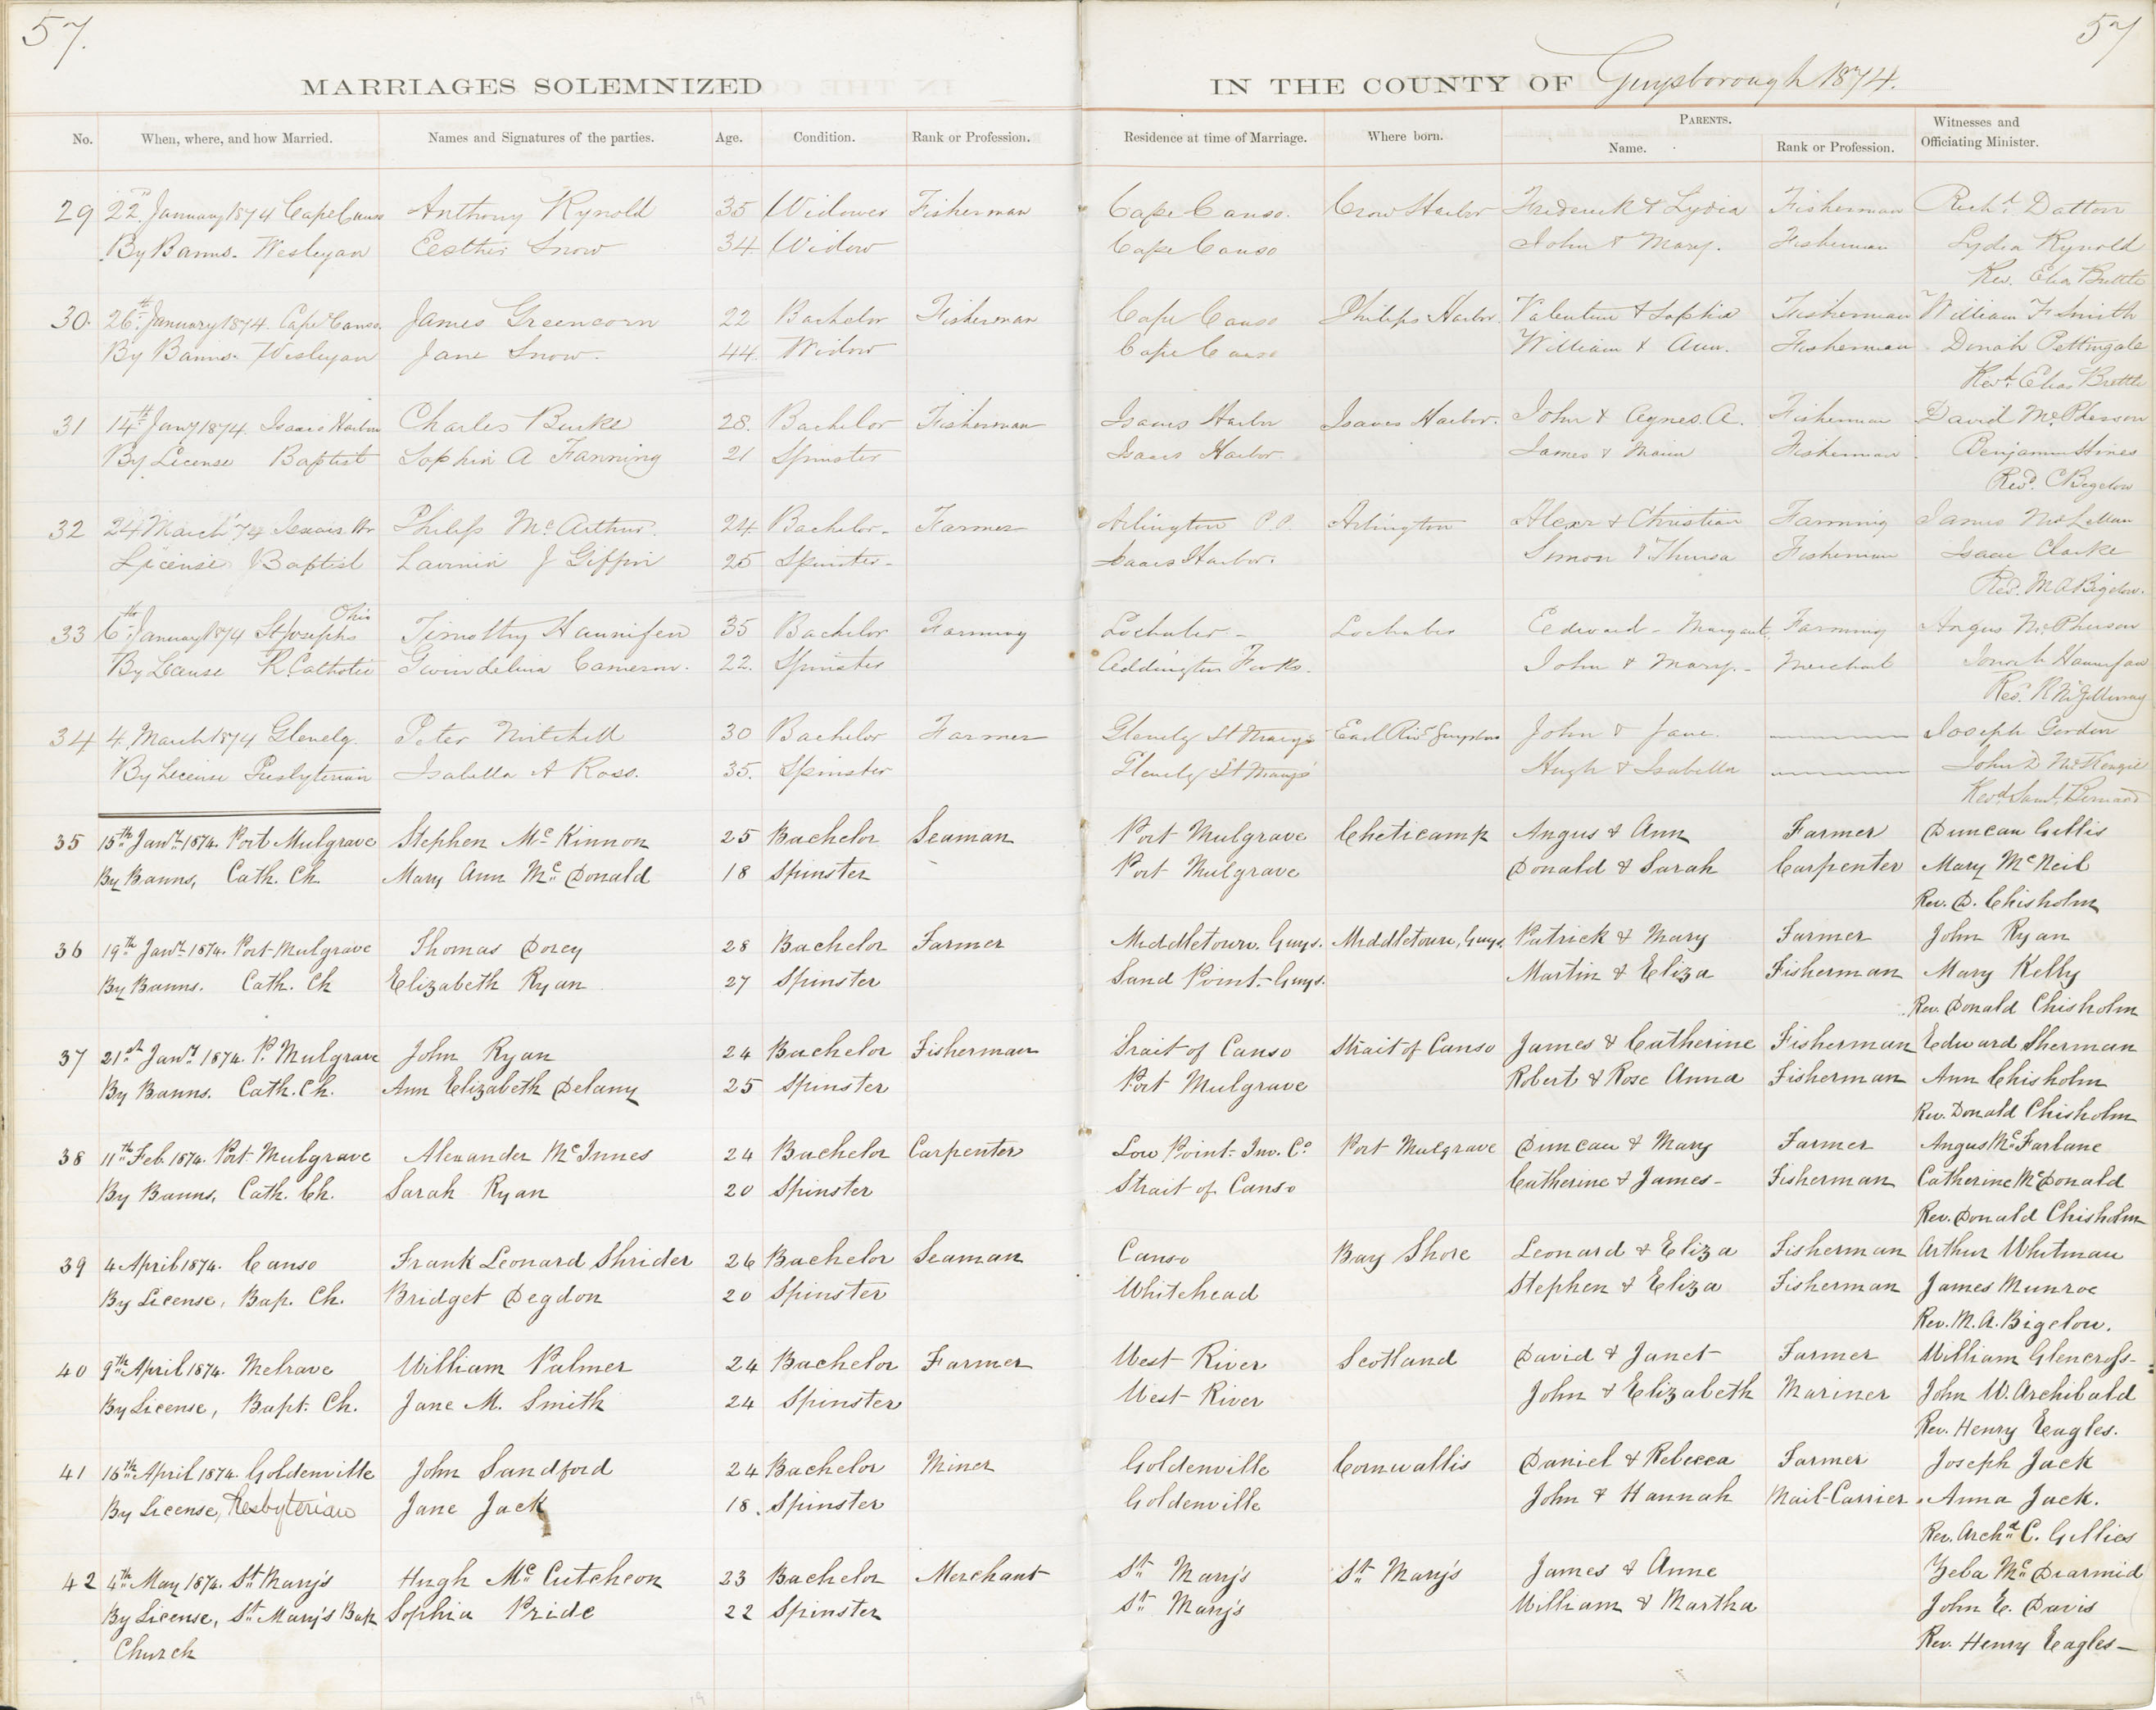 57. 57
MARRIAGES SOLEMNIZED IN THE COUNTY OF Guysborough 1874.
No. When, where, and how Married. Names and Signatures of the parties. Age. Condition. Rank or Profession. Residence at time of Marriage. Where born. PARENTS. Name. Rank or Profession. Witnesses and Officiating Minister.
29 22nd January 1874 Cape Canso Anthony Rynold 35 Widower Fisherman Cape Canso. Crow Harbor Frederick & Lydia Fisherman Richd. Datton
By Banns. Wesleyan Eesther Snow 34. Widow Cape Canso John & Mary. Fisherman Lydia Rynold
Rev. Elia Brettle
30. 26th January 1874. Cape Canso. James Greencorn 22 Bachelor Fisherman Cape Canso Philips Harbor. Valentine & Sophia Fisherman William F Smith
By Banns. Wesleyan Jane Snow. 44. Widow Cape Canso William & Ann. Fisherman Dinah Pettingale
Revd. Elias Brettle
31 14th Jany 1874. Isaacs Harbor Charles Burke 28. Bachelor Fisherman Isaacs Harbor Isaacs Harbor. John & Agnes. A. Fisherman David McPherson
By License Baptist Sophia A Fanning 21 Spinster Isaacs Harbor. James & Maria Fisherman Benjamin Hines
Revd. C Bigelow
32 24 March '74 Isaacs Hr Philip McArthur. 24. Bachelor. Farmer Arlington P.P. Arlington Alexr & Christian Farming James McLellan
License Baptist Lavinia J Giffin 25 Spinster. Isaacs Harbor. Simon & Thursa Fisherman Isaac Clarke
Revd. M A Bigelow.
33 6th January 1874 St Josephs Ohio Timothy Hannifen 35 Bachelor Farming Lochaber Lochaber Edward - Margaret. Farming Angus McPherson
By License R. Catholic Gwendelina Cameron. 22. Spinster Addington Forks. John & Mary. Merchant Hannifan
Revd. R McGillivray
34 4. March 1874 Glenelg. Peter Mitchell 30 Bachelor Farmer Glenelg St Mary's East Rivr Guysboro John & Jane. Joseph Gordon
By License Presbyterian Isabella A Ross. 35. Spinster Glenelg St Mary's Hugh & Isabella John D McKenzie
Revd Saml. Bernard
35 15th Jany. 1874. Port Mulgrave Stephen McKinnon 25 Bachelor Seaman Port Mulgrave Cheticamp Angus & Ann Farmer Duncan Gillis
By Banns, Cath. Ch. Mary Ann McDonald 18 Spinster Port Mulgrave Donald & Sarah Carpenter Mary McNeil
Rev. D. Chisholm
36 19th Jany. 1874. Port Mulgrave Thomas Dorey 28 Bachelor Farmer Middletown, Guys. Middletown, Guys. Patrick & Mary Farmer John Ryan
By Banns. Cath. Ch Elizabeth Ryan 27 Spinster Sand Point. Guys. Martin & Eliza Fisherman Mary Kelly
Rev. Donald Chisholm
37 21st Jany. 1874. P. Mulgrave John Ryan 24 Bachelor Fisherman Srait of Canso Strait of Canso James & Catherine Fisherman Edward Sherman
By Banns. Cath. Ch. Ann Elizabeth Delany 25 Spinster Port Mulgrave Robert & Rose Anna Fisherman Ann Chisholm
Rev. Donald Chisholm
38 11th Feb. 1874. Port Mulgrave Alexander McInnes 24 Bachelor Carpenter Low Point. Inv. Co. Port Mulgrave Duncan & Mary Farmer Angus McFarlane
By Banns, Cath. Ch. Sarah Ryan 20 Spinster Strait of Canso Catherine & James - Fisherman Catherine McDonald
Rev. Donald Chisholm
39 4 April 1874. Canso Frank Leonard Shrider 26 Bachelor Seaman Canso Bay Shore Leonard & Eliza Fisherman Arthur Whitman
By License, Bap. Ch. Bridget Degdon 20 Spinster Whitehead Stephen & Eliza Fisherman James Munroe
Rev. M. A. Bigelow.
40 9th April 1874. Melrave William Palmer 24 Bachelor Farmer West River Scotland David & Janet Farmer William Glencross
By License, Bapt. Ch. Jane M. Smith 24 Spinster West River John & Elizabeth Mariner John W. Archibald
Rev. Henry Eagles.
41 16th April 1874. Goldenville John Sandford 24 Bachelor Miner Goldenville Cornwallis Daniel & Rebecca Farmer Joseph Jack
By License, Presbyterian Jane Jack 18. Spinster Goldenville John & Hannah Mail-Carrier. Anna Jack.
Rev. Archd. C. Gillies
42 4th May 1874. St. Mary's Hugh McCutcheon 23 Bachelor Merchant St. Mary's St. Mary's James & Anne Zeba McDiarmid
By License, St. Mary's Bap Sophia Pride 22 Spinster St. Mary's William & Martha John E. Davis
Church Rev. Henry Eagles